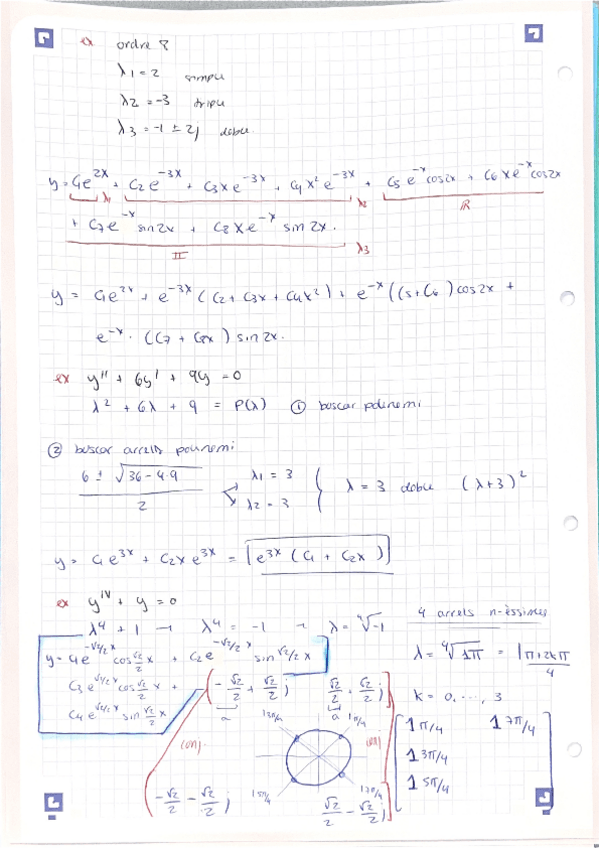 ex ordre 8
λ1 = 2 simple
λ2 = -3 triple
λ3 = -1 ± 2j doble
y = C1e^2x + C2e^-3x + C3xe^-3x + C4x²e^-3x + C5e^-x cos2x + C6xe^-x cos2x
λ1 λ2 R
+ C7e^-x sin2x + C8xe^-x sin2x.
II λ3
y = C1e^2x + e^-3x (C2 + C3x + C4x²) + e^-x (C5 + C6) cos2x +
e^-x · (C7 + C8x) sin2x.
ex y'' + 6y' + 9y = 0
λ² + 6λ + 9 = P(λ) ① buscar polinomi
② buscar arrels polinomi
6 ± √36-4·9 / 2 λ1 = 3 λ2 = 3 λ = 3 doble (λ+3)²
y = C1e^3x + C2xe^3x = e^3x (C1 + C2x)
ex y^IV + y = 0
4 arrels n-èssimes
λ⁴ + 1 → λ⁴ = -1 → λ = ⁴√-1
λ = ⁴√1π = 1 π+2kπ/4
y = C1e^-√2/2 x cos √2/2 x + C2e^-√2/2 x sin √2/2 x
C3e^√2/2 x cos √2/2 x +
C4e^√2/2 x sin √2/2 x
(-√2/2 + √2/2 j √2/2 + √2/2 j)
a a
k = 0, ..., 3
1 3π/4 1 π/4
1 π/4 1 7π/4
1 3π/4
1 5π/4
(conj) (conj)
1 5π/4 1 7π/4
-√2/2 - √2/2 j √2/2 - √2/2 j